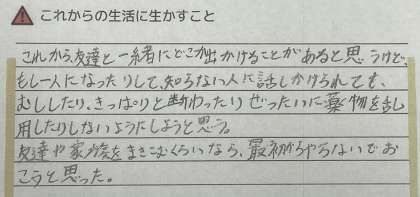 これからの生活に生かすこと
これから、友達と一緒にどこか出かけることがあると思うけど、
もし一人になったりして、知らない人に話しかけられても、
むししたり、きっぱりと断わったりぜったいに薬物を乱
用したりしないようにしようと思う。
友達や家族をまきこむくらいなら、最初からやらないでお
こうと思った。